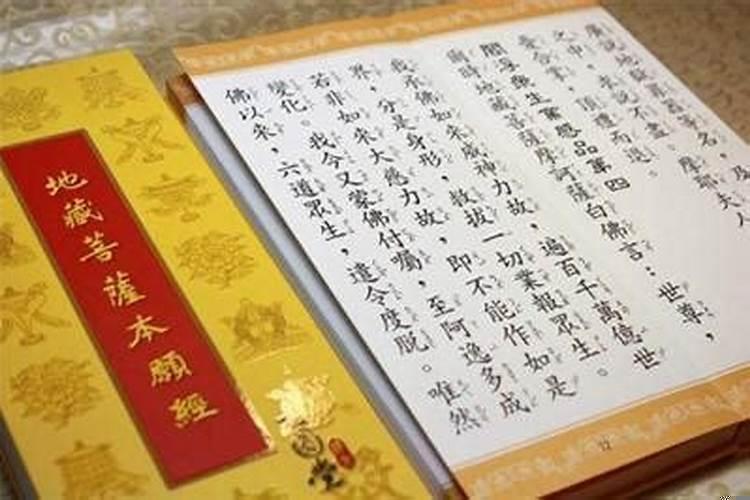 廣說地獄罪器等名，及
之中，求說不盡。摩耶夫人
憂合掌，頂禮而退。
閻浮眾生業感品第四
爾時地藏菩薩摩訶薩白佛言：世尊，
我承佛如來威神力故，遍百千萬億世
界，分是身形，救拔一切業報眾生。
若非如來大慈力故，即不能作如是
變化。我今又蒙佛付囑，至阿逸多成
佛以來，六道眾生，遣令度脫。唯然
地藏菩薩本願經